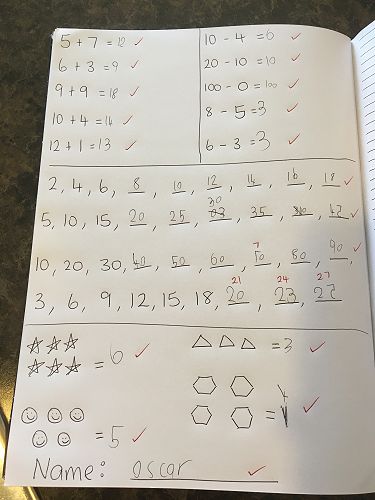 5 + 7 = 12 ✓
6 + 3 = 9 ✓
9 + 9 = 18 ✓
10 + 4 = 14 ✓
12 + 1 = 13 ✓
10 - 4 = 6 ✓
20 - 10 = 10 ✓
100 - 0 = 100 ✓
8 - 5 = 3 ✓
6 - 3 = 3 ✓
2, 4, 6, 8, 10, 12, 14, 16, 18 ✓
30
5, 10, 15, 20, 25, 35, ✓
7 90
10, 20, 30, 40, 50, 60, 80, ✓
21 24 27
3, 6, 9, 12, 15, 18, 20, 23, 22
= 6 ✓
= 3 ✓
= 5 ✓
= 4 ✓
Name: oscar ✓